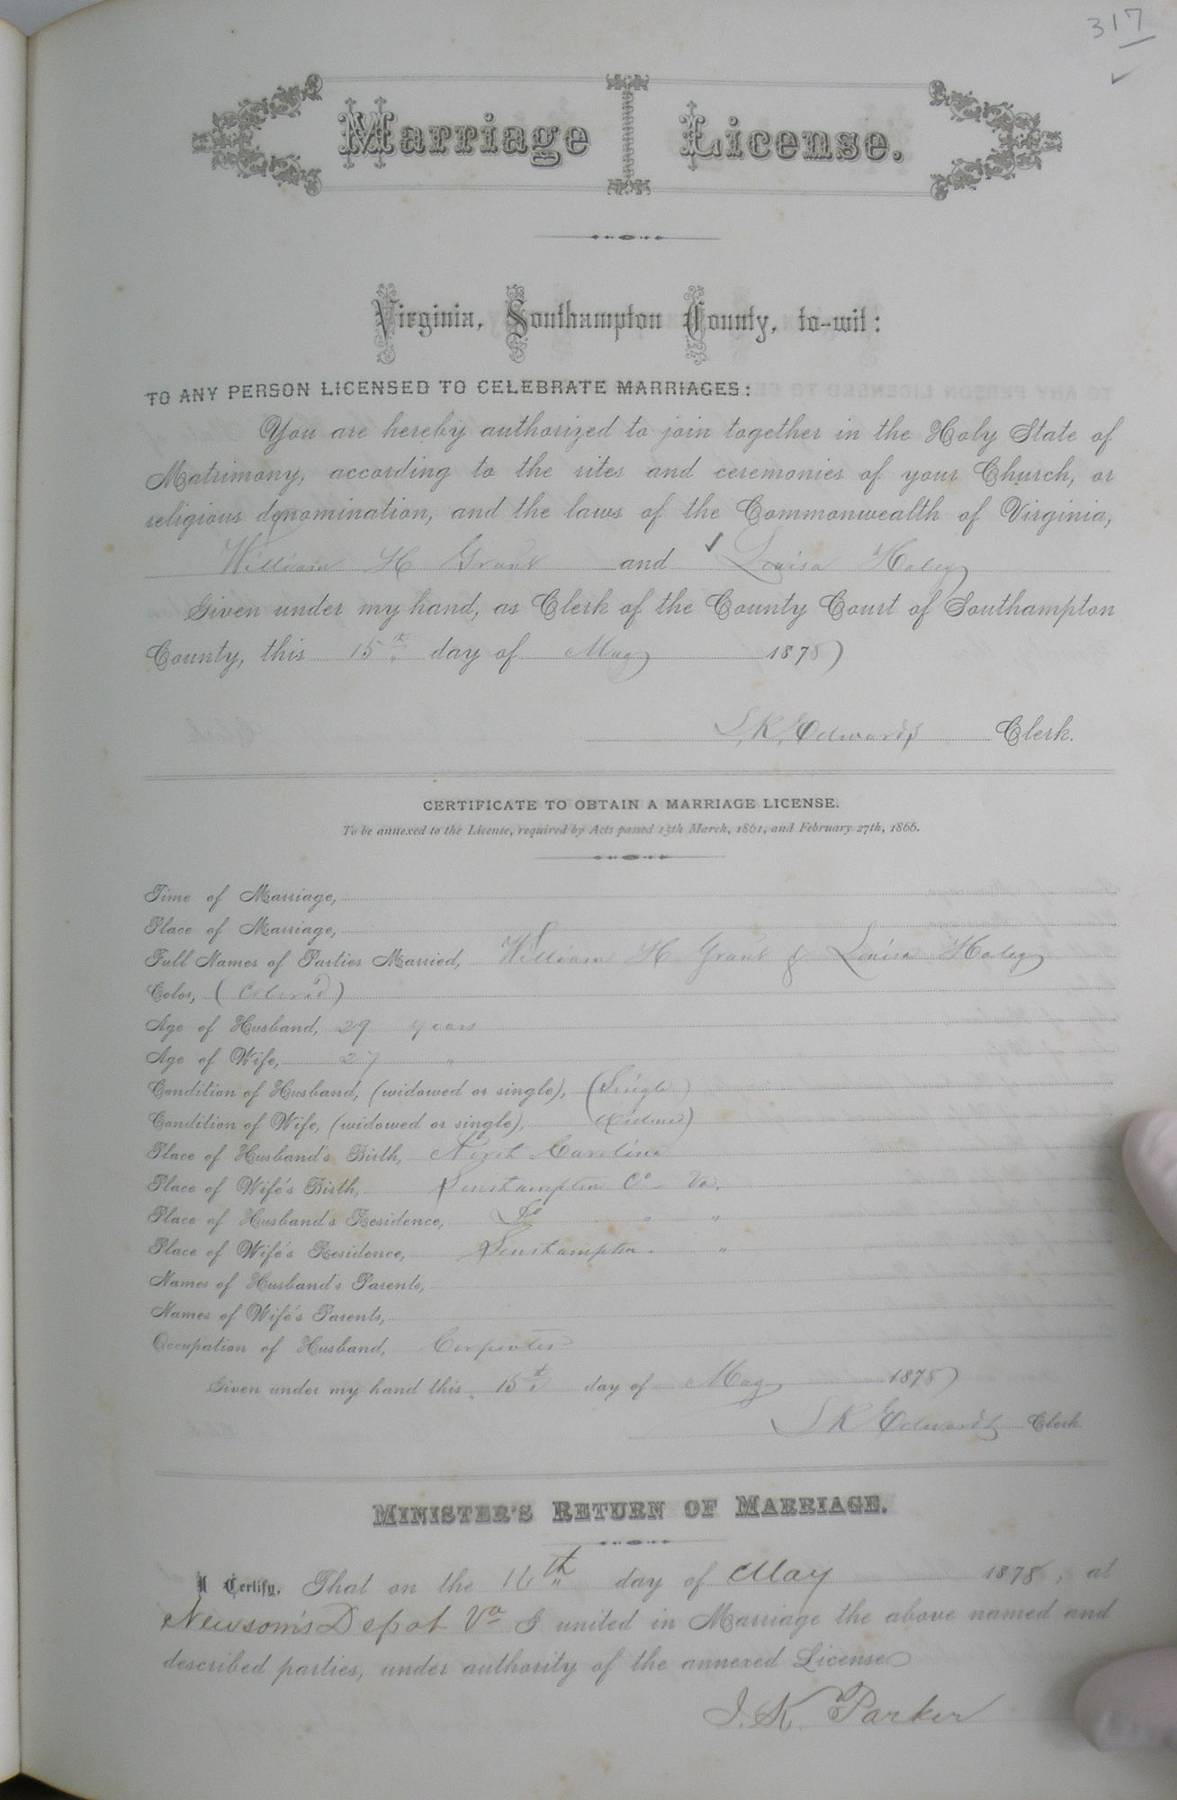 317
Marriage License.
Virginia, Southampton County, to-wit:
TO ANY PERSON LICENSED TO CELEBRATE MARRIAGES:
You are hereby authorized to join together in the Holy State of
Matrimony, according to the rites and ceremonies of your Church, or
religious denomination, and the laws of the Commonwealth of Virginia,
William H Grant and Louisa Haley
Given under my hand, as Clerk of the County Court of Southampton
County, this 15th day of May 1878
L. R. Edwards Clerk.
CERTIFICATE TO OBTAIN A MARRIAGE LICENSE.
To be annexed to the License, required by Acts passed 15th March, 1861, and February 27th, 1866.
Time of Marriage,
Place of Marriage,
Full Names of Parties Married, William H Grant & Louisa Haley
Color, (Colored)
Age of Husband, 29 years
Age of Wife, 27 "
Condition of Husband, (widowed or single), (Single)
Condition of Wife, (widowed or single), (Widow)
Place of Husband's Birth, North Carolina
Place of Wife's Birth, Southampton Co Va.
Place of Husband's Residence, Do " "
Place of Wife's Residence, Southampton "
Names of Husband's Parents,
Names of Wife's Parents,
Occupation of Husband, Carpenter
Given under my hand this 15th day of May 1878
L R Edwards Clerk
MINISTER'S RETURN OF MARRIAGE.
I Certify, That on the 16th day of May 1878, at
Newsom's Depot Va I united in Marriage the above named and
described parties, under authority of the annexed License
J. K. Parker